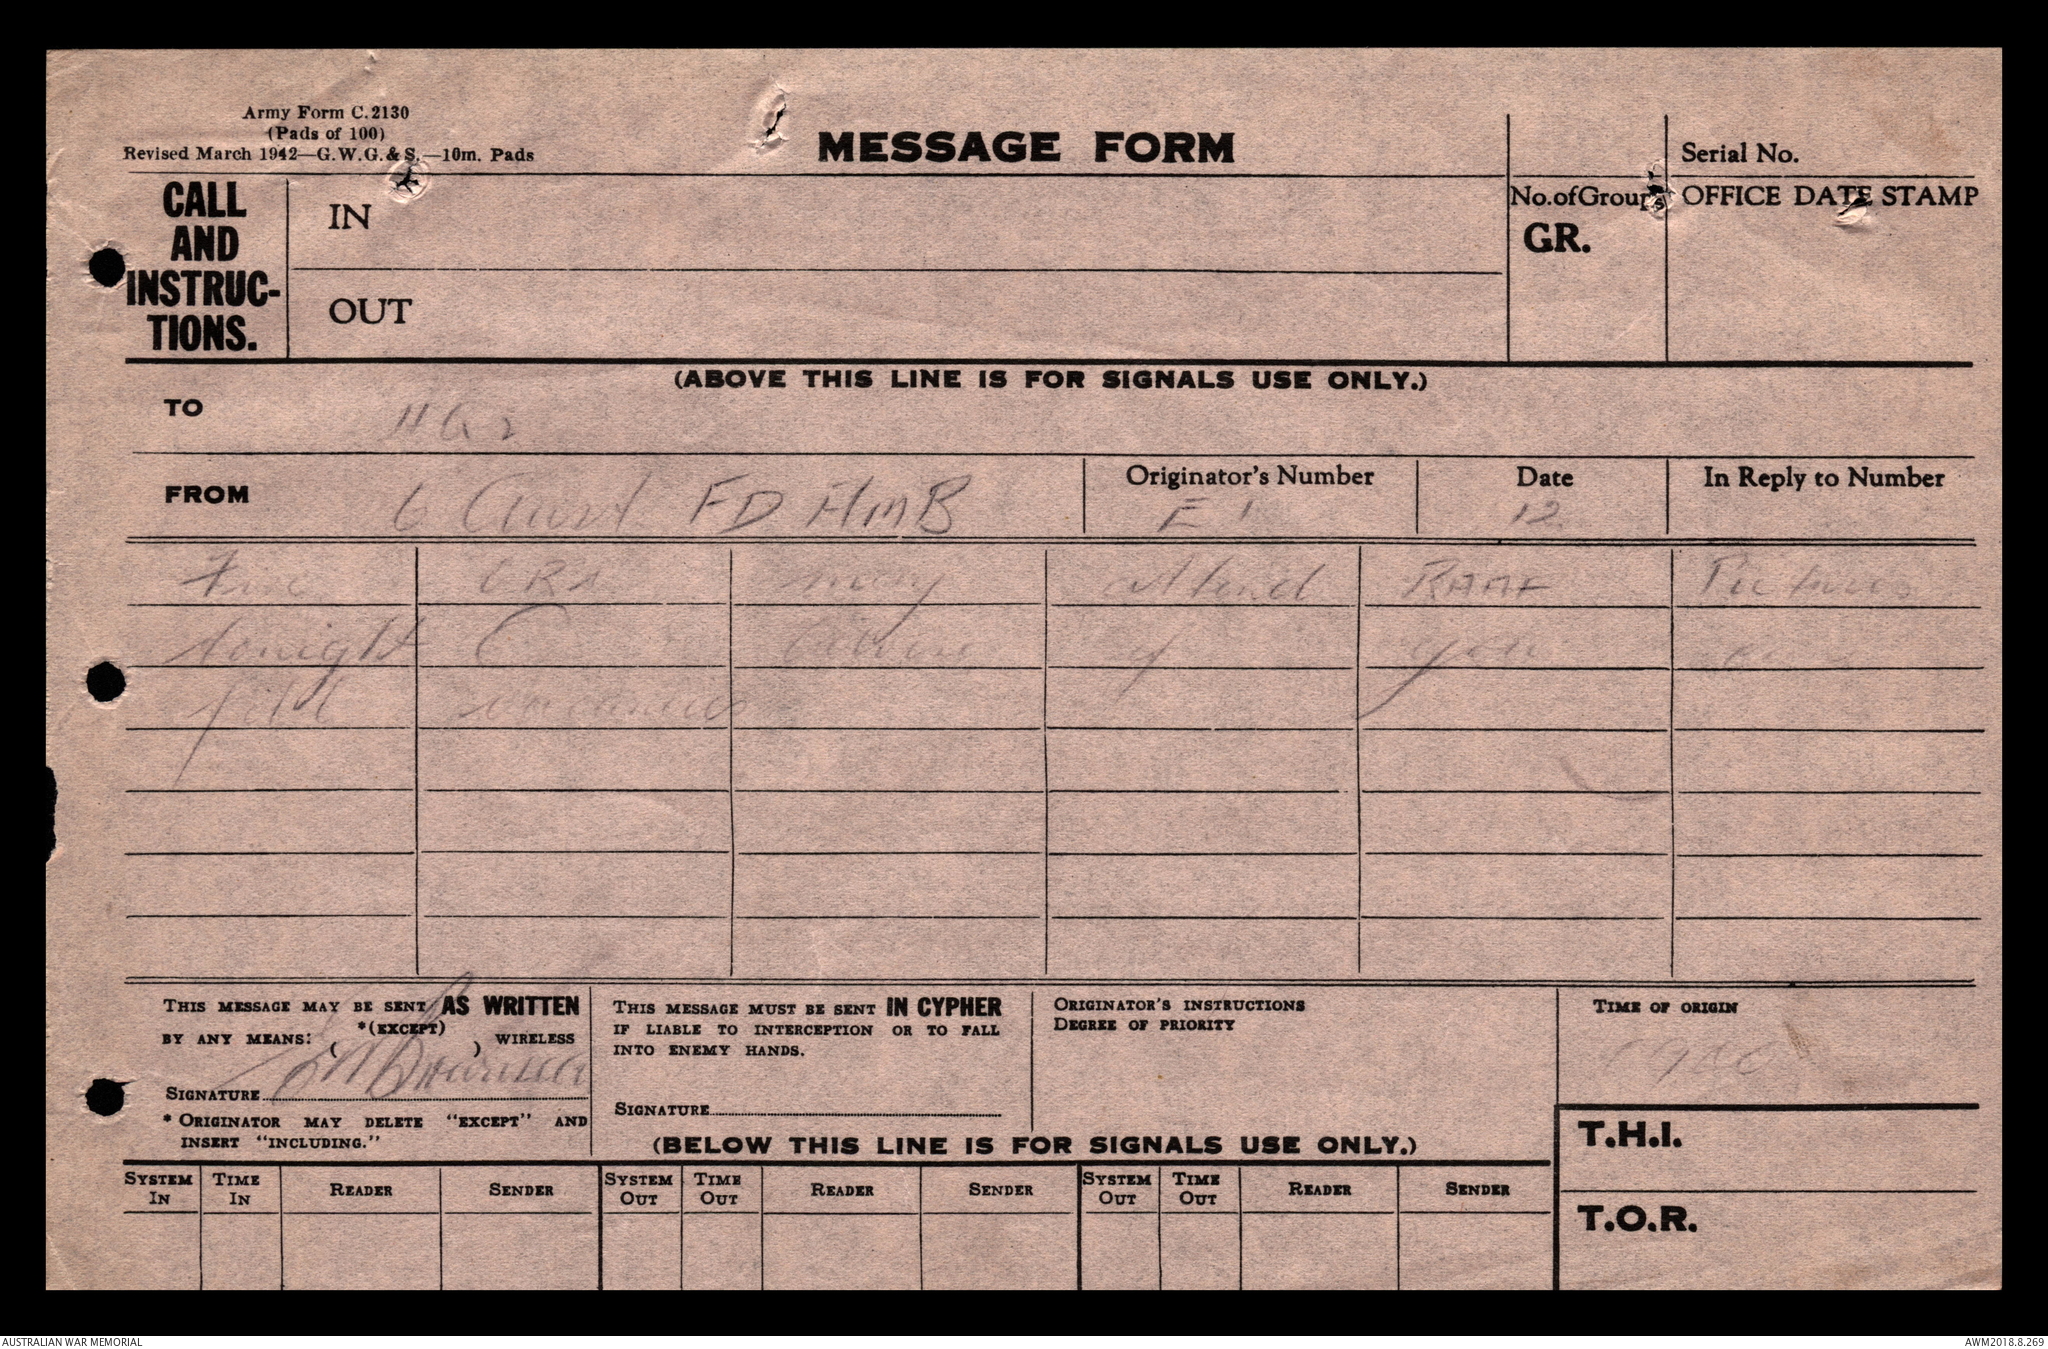 Army Form C.2130
(Pads of 100)
Revised March 1942—G.W.G.& S.—10m. Pads
MESSAGE FORM
Serial No.
CALL AND INSTRUC- TIONS.
IN
OUT
No. of Groups
GR.
OFFICE DATE STAMP
(ABOVE THIS LINE IS FOR SIGNALS USE ONLY.)
TO
FROM 6 FD AMB
Originator's Number E 1
Date 12
In Reply to Number
ORs may attend RAAF Pictures
tonight if you
THIS MESSAGE MAY BE SENT AS WRITTEN
BY ANY MEANS: *(EXCEPT) WIRELESS
SIGNATURE
* ORIGINATOR MAY DELETE "EXCEPT" AND
INSERT "INCLUDING."
THIS MESSAGE MUST BE SENT IN CYPHER
IF LIABLE TO INTERCEPTION OR TO FALL
INTO ENEMY HANDS.
SIGNATURE
ORIGINATOR'S INSTRUCTIONS
DEGREE OF PRIORITY
TIME OF ORIGIN
(BELOW THIS LINE IS FOR SIGNALS USE ONLY.)
T.H.I.
T.O.R.
SYSTEM IN TIME IN READER SENDER SYSTEM OUT TIME OUT READER SENDER SYSTEM OUT TIME OUT READER SENDER
AUSTRALIAN WAR MEMORIAL
AWM2018.8.269